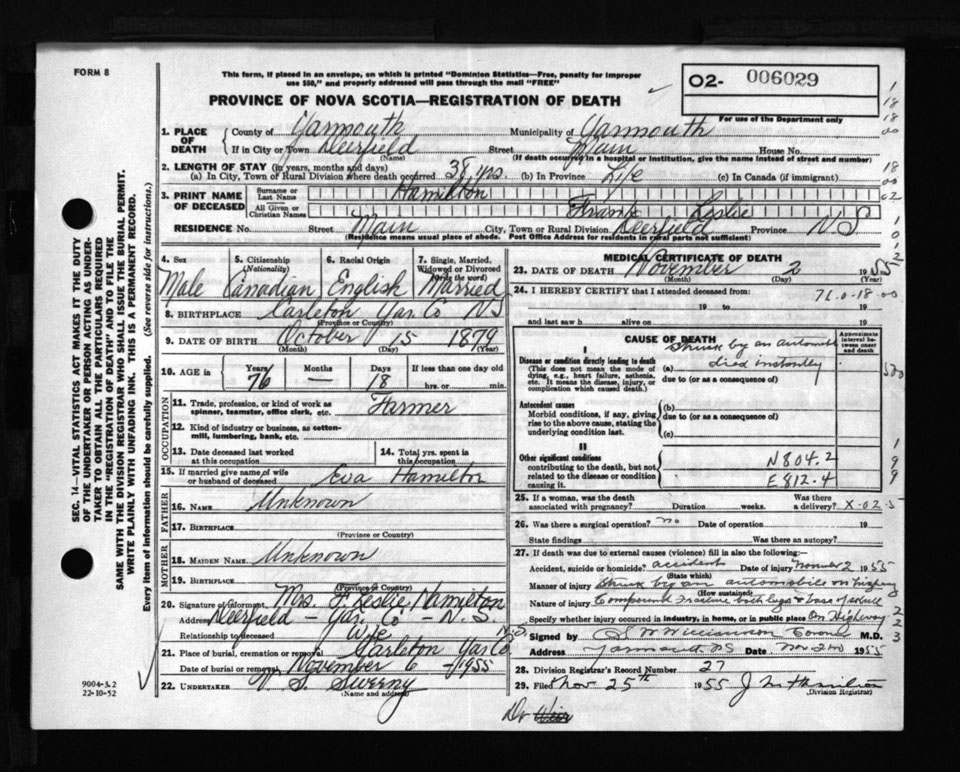 FORM 8
This form, if placed in an envelope, on which is printed "Dominion Statistics—Free, penalty for improper
use $50," and properly addressed will pass through the mail "FREE"
O2- 006029
For use of the Department only
PROVINCE OF NOVA SCOTIA—REGISTRATION OF DEATH
1. PLACE OF DEATH
County of Yarmouth Municipality of Yarmouth
If in City or Town Deerfield (Name) Street Main House No.
(If death occurred in a hospital or institution, give the name instead of street and number)
2. LENGTH OF STAY (in years, months and days)
(a) In City, Town or Rural Division where death occurred 38 yrs. (b) In Province Life (c) In Canada (if immigrant)
3. PRINT NAME OF DECEASED
Surname or Last Name Hamilton
All Given or Christian Names Frank Leslie
RESIDENCE No. Street Main City, Town or Rural Division Deerfield Province N S
(Residence means usual place of abode. Post Office Address for residents in rural parts not sufficient)
4. Sex Male
5. Citizenship (Nationality) Canadian
6. Racial Origin English
7. Single, Married, Widowed or Divorced (write the word) Married
8. BIRTHPLACE Carleton Yar. Co NS
(Province or Country)
9. DATE OF BIRTH October 15 1879
(Month) (Day) (Year)
10. AGE in Years 76 Months — Days 18 If less than one day old hrs. or min.
OCCUPATION
11. Trade, profession, or kind of work as spinner, teamster, office clerk, etc. Farmer
12. Kind of industry or business, as cotton-mill, lumbering, bank, etc.
13. Date deceased last worked at this occupation
14. Total yrs. spent in this occupation
15. If married give name of wife or husband of deceased Eva Hamilton
FATHER
16. NAME Unknown
17. BIRTHPLACE
(Province or Country)
MOTHER
18. MAIDEN NAME Unknown
19. BIRTHPLACE
(Province or Country)
20. Signature of informant Mrs. F. Leslie Hamilton
Address Deerfield - Yar. Co - N.S.
Relationship to deceased Wife
21. Place of burial, cremation or removal Carleton Yar. Co. N.S.
Date of burial or removal November 6 - 1955
22. UNDERTAKER S. Sweeny
(Name and address)
MEDICAL CERTIFICATE OF DEATH
23. DATE OF DEATH November 2 1955
(Month) (Day) (Year)
24. I HEREBY CERTIFY that I attended deceased from:
19 to 19
and last saw h alive on 19
CAUSE OF DEATH
Approximate interval between onset and death
I
Disease or condition directly leading to death
(This does not mean the mode of dying, e.g., heart failure, asthenia, etc. It means the disease, injury, or complication which caused death.)
(a) Struck by an automobile
died instantly
due to (or as a consequence of)
Antecedent causes
Morbid conditions, if any, giving rise to the above cause, stating the underlying condition last.
(b)
due to (or as a consequence of)
(c)
II
Other significant conditions
contributing to the death, but not related to the disease or condition causing it.
N804.2
E812.4
25. If a woman, was the death associated with pregnancy? Duration weeks. Was there a delivery?
26. Was there a surgical operation? no Date of operation
State findings Was there an autopsy?
27. If death was due to external causes (violence) fill in also the following:—
Accident, suicide or homicide? accident Date of injury Nov 2 1955
(State which)
Manner of injury Struck by an automobile on highway
(How sustained)
Nature of injury Compound Fracture both legs & base of skull
Specify whether injury occurred in industry, in home, or in public place On Highway
Signed by Coroner M.D.
Address Yarmouth NS Date Nov 2nd 1955
28. Division Registrar's Record Number 27
29. Filed Nov 25th 1955 J M Hamilton
(Division Registrar)
Dr Weir
SEC. 14—VITAL STATISTICS ACT MAKES IT THE DUTY
OF THE UNDERTAKER OR PERSON ACTING AS UNDER-
TAKER TO OBTAIN ALL THE PARTICULARS REQUIRED
IN THE "REGISTRATION OF DEATH" AND TO FILE THE
SAME WITH THE DIVISION REGISTRAR WHO SHALL ISSUE THE BURIAL PERMIT.
WRITE PLAINLY WITH UNFADING INK. THIS IS A PERMANENT RECORD.
Every item of information should be carefully supplied. (See reverse side for instructions.)
9004-3.2
22-10-52